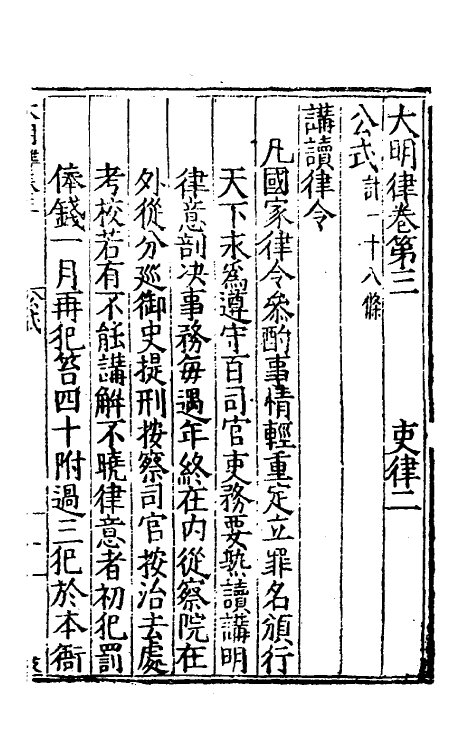 大明律卷第三　吏律二
公式計一十八條
講讀律令
凡國家律令叅酌事情輕重定立罪名頒行
天下永爲遵守百司官吏務要熟讀講明
律意剖决事務每遇年終在内從察院在
外從分巡御史提刑按察司官按治去處
考校若有不能講解不曉律意者初犯罰
俸錢一月再犯笞四十附過三犯於本衙